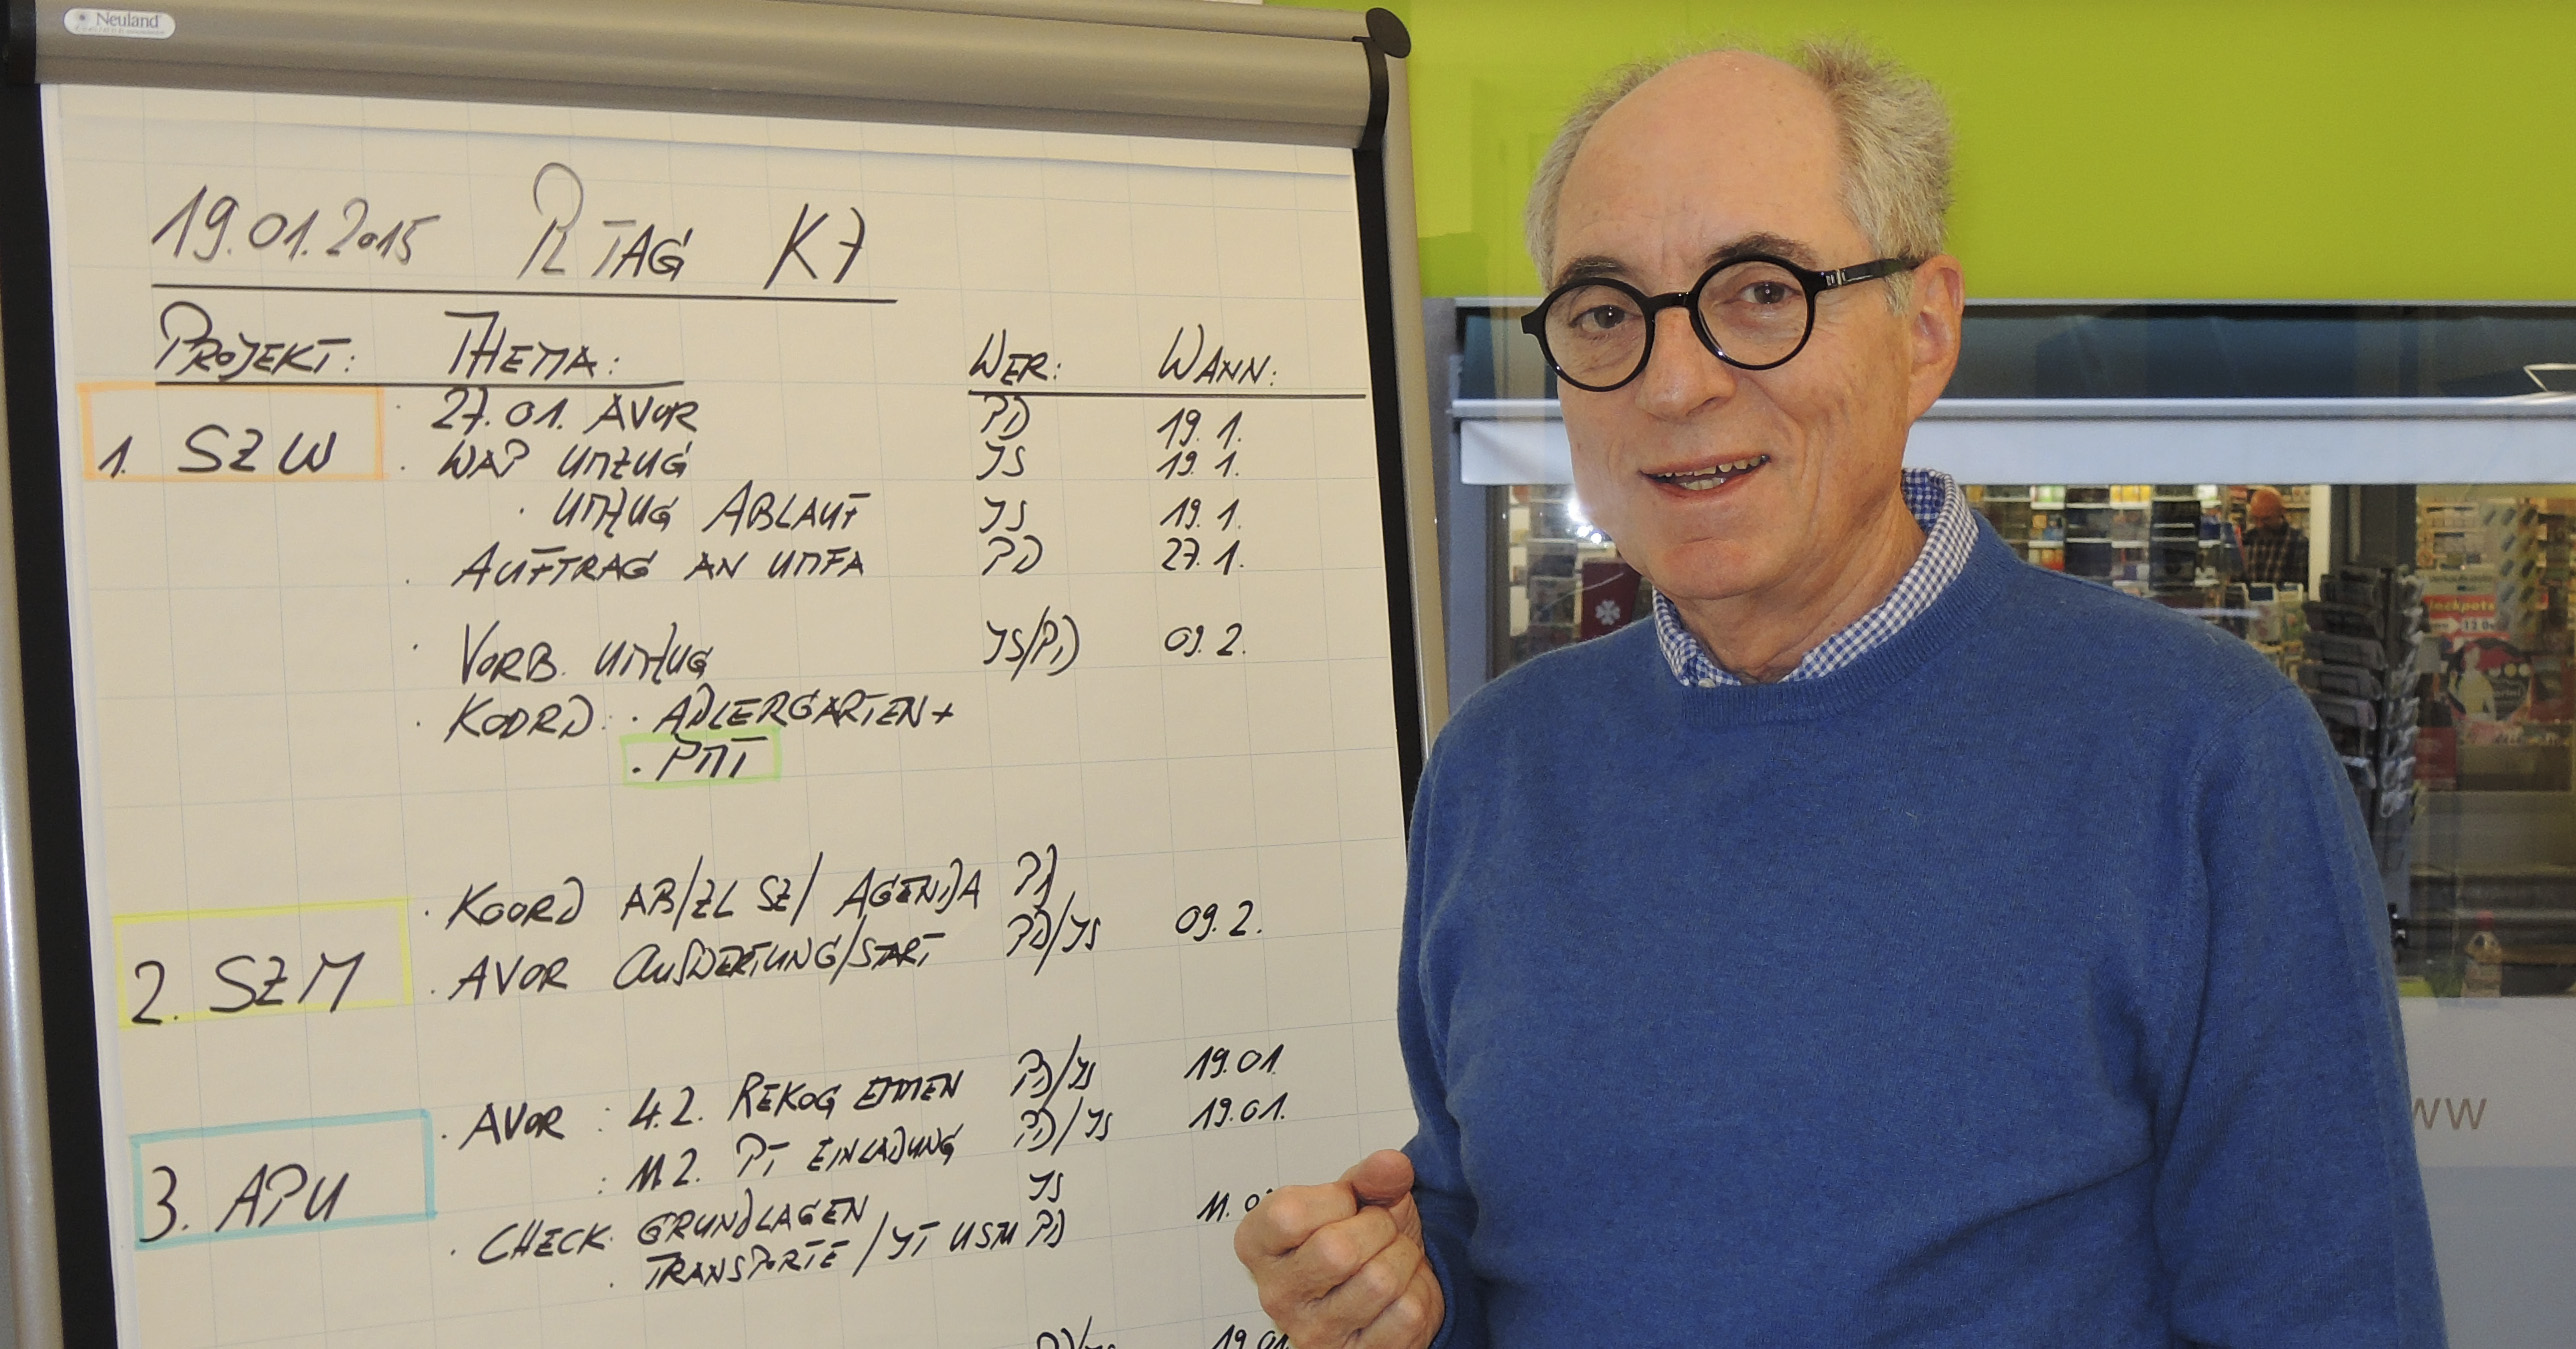 Neuland
19.01.2015 PL TAG K7
PROJEKT: THEMA: WER: WANN:
1. SZW · 27.01. AVOR PD 19.1.
· WAP UMZUG JS 19.1.
· UMZUG ABLAUF JS 19.1.
· AUFTRAG AN UMFA PD 27.1.
· VORB. UMZUG JS/PD 09.2.
· KOORD: · ADLERGARTEN+
· PMT
2. SZM · KOORD AB/ZL SZ/ AGENDA PD
· AVOR AUSWERTUNG/START PD/JS 09.2.
3. APU · AVOR : 4.2. REKOG EMMEN PD/JS 19.01
: 11.2. PT EINLADUNG PD/JS 19.01.
· CHECK · GRUNDLAGEN JS 11.
· TRANSPORTE / JT USM PD
PD/JS 19.01.
Jackpots
ww